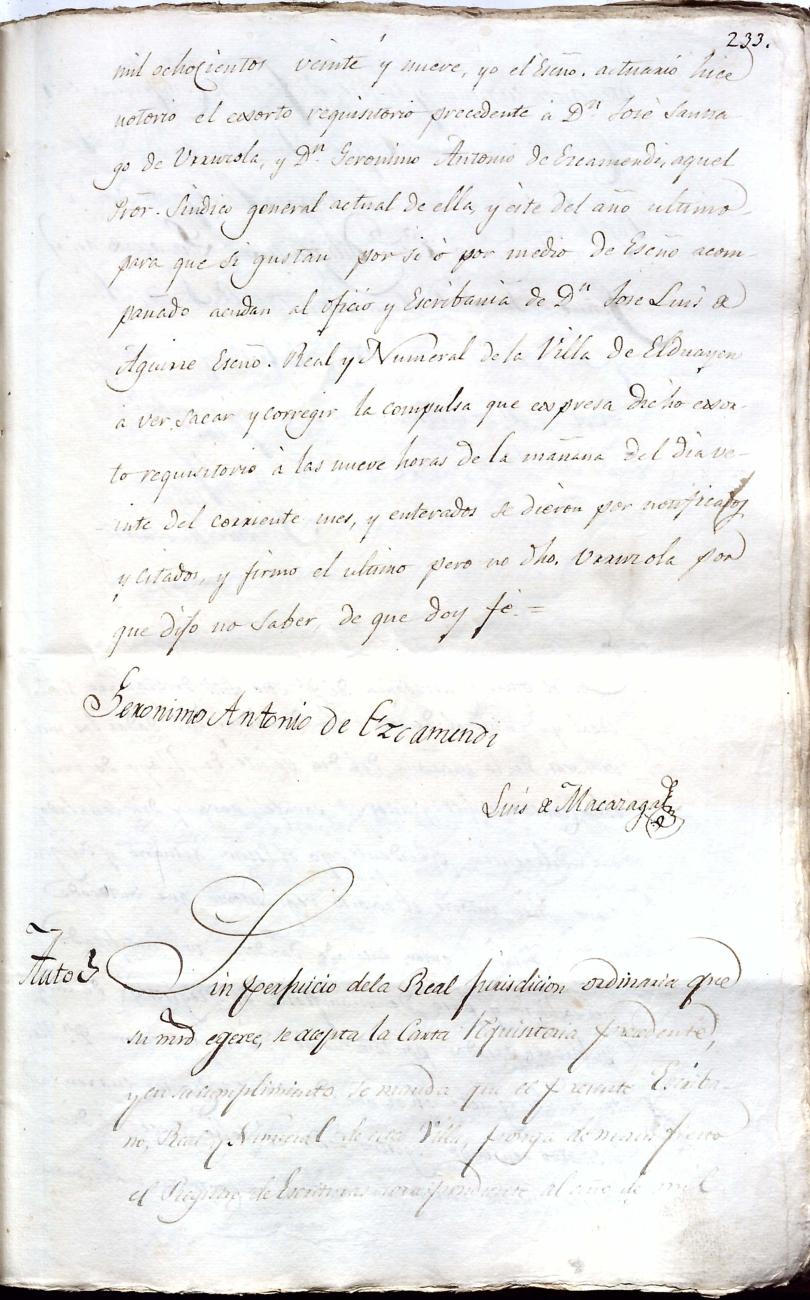 233.
mil ochocientos veinte y nueve, yo el Esno. actuario hice
notorio el exorto requisitorio precedente à Dn. José Santia
go de Urruzola, y Dn. Geronimo Antonio de Ezcamendi, aquel
Pror. Sindico general actual de ella, y éste del año ultimo
para que si gustan por si ó por medio de Esno acom-
pañado acudan al oficio y Escribania de Dn. Jose Luis de
Aguirre Esno. Real y Numeral de la Villa de Elduayen
a ver, sacar y corregir la compulsa que expresa dicho exor-
to requisitorio à las nueve horas de la mañana del dia ve-
inte del corriente mes, y enterados se dieron por notificados
y citados, y firmo el ultimo pero no dho. Urruzola por
que dijo no saber, de que doy fé. =
Geronimo Antonio de Ezcamendi
Luis de Macazaga
Auto
Sin perjuicio dela Real Jurisdicion ordinaria que
su mrd egerce, se acepta la Carta requisitoria precedente,
y en su cumplimiento se manda que el presente Escriba
no, Real y Numeral de esta Villa, ponga de manifiesto
el Registro de Escrituras correspondiente al año de mil